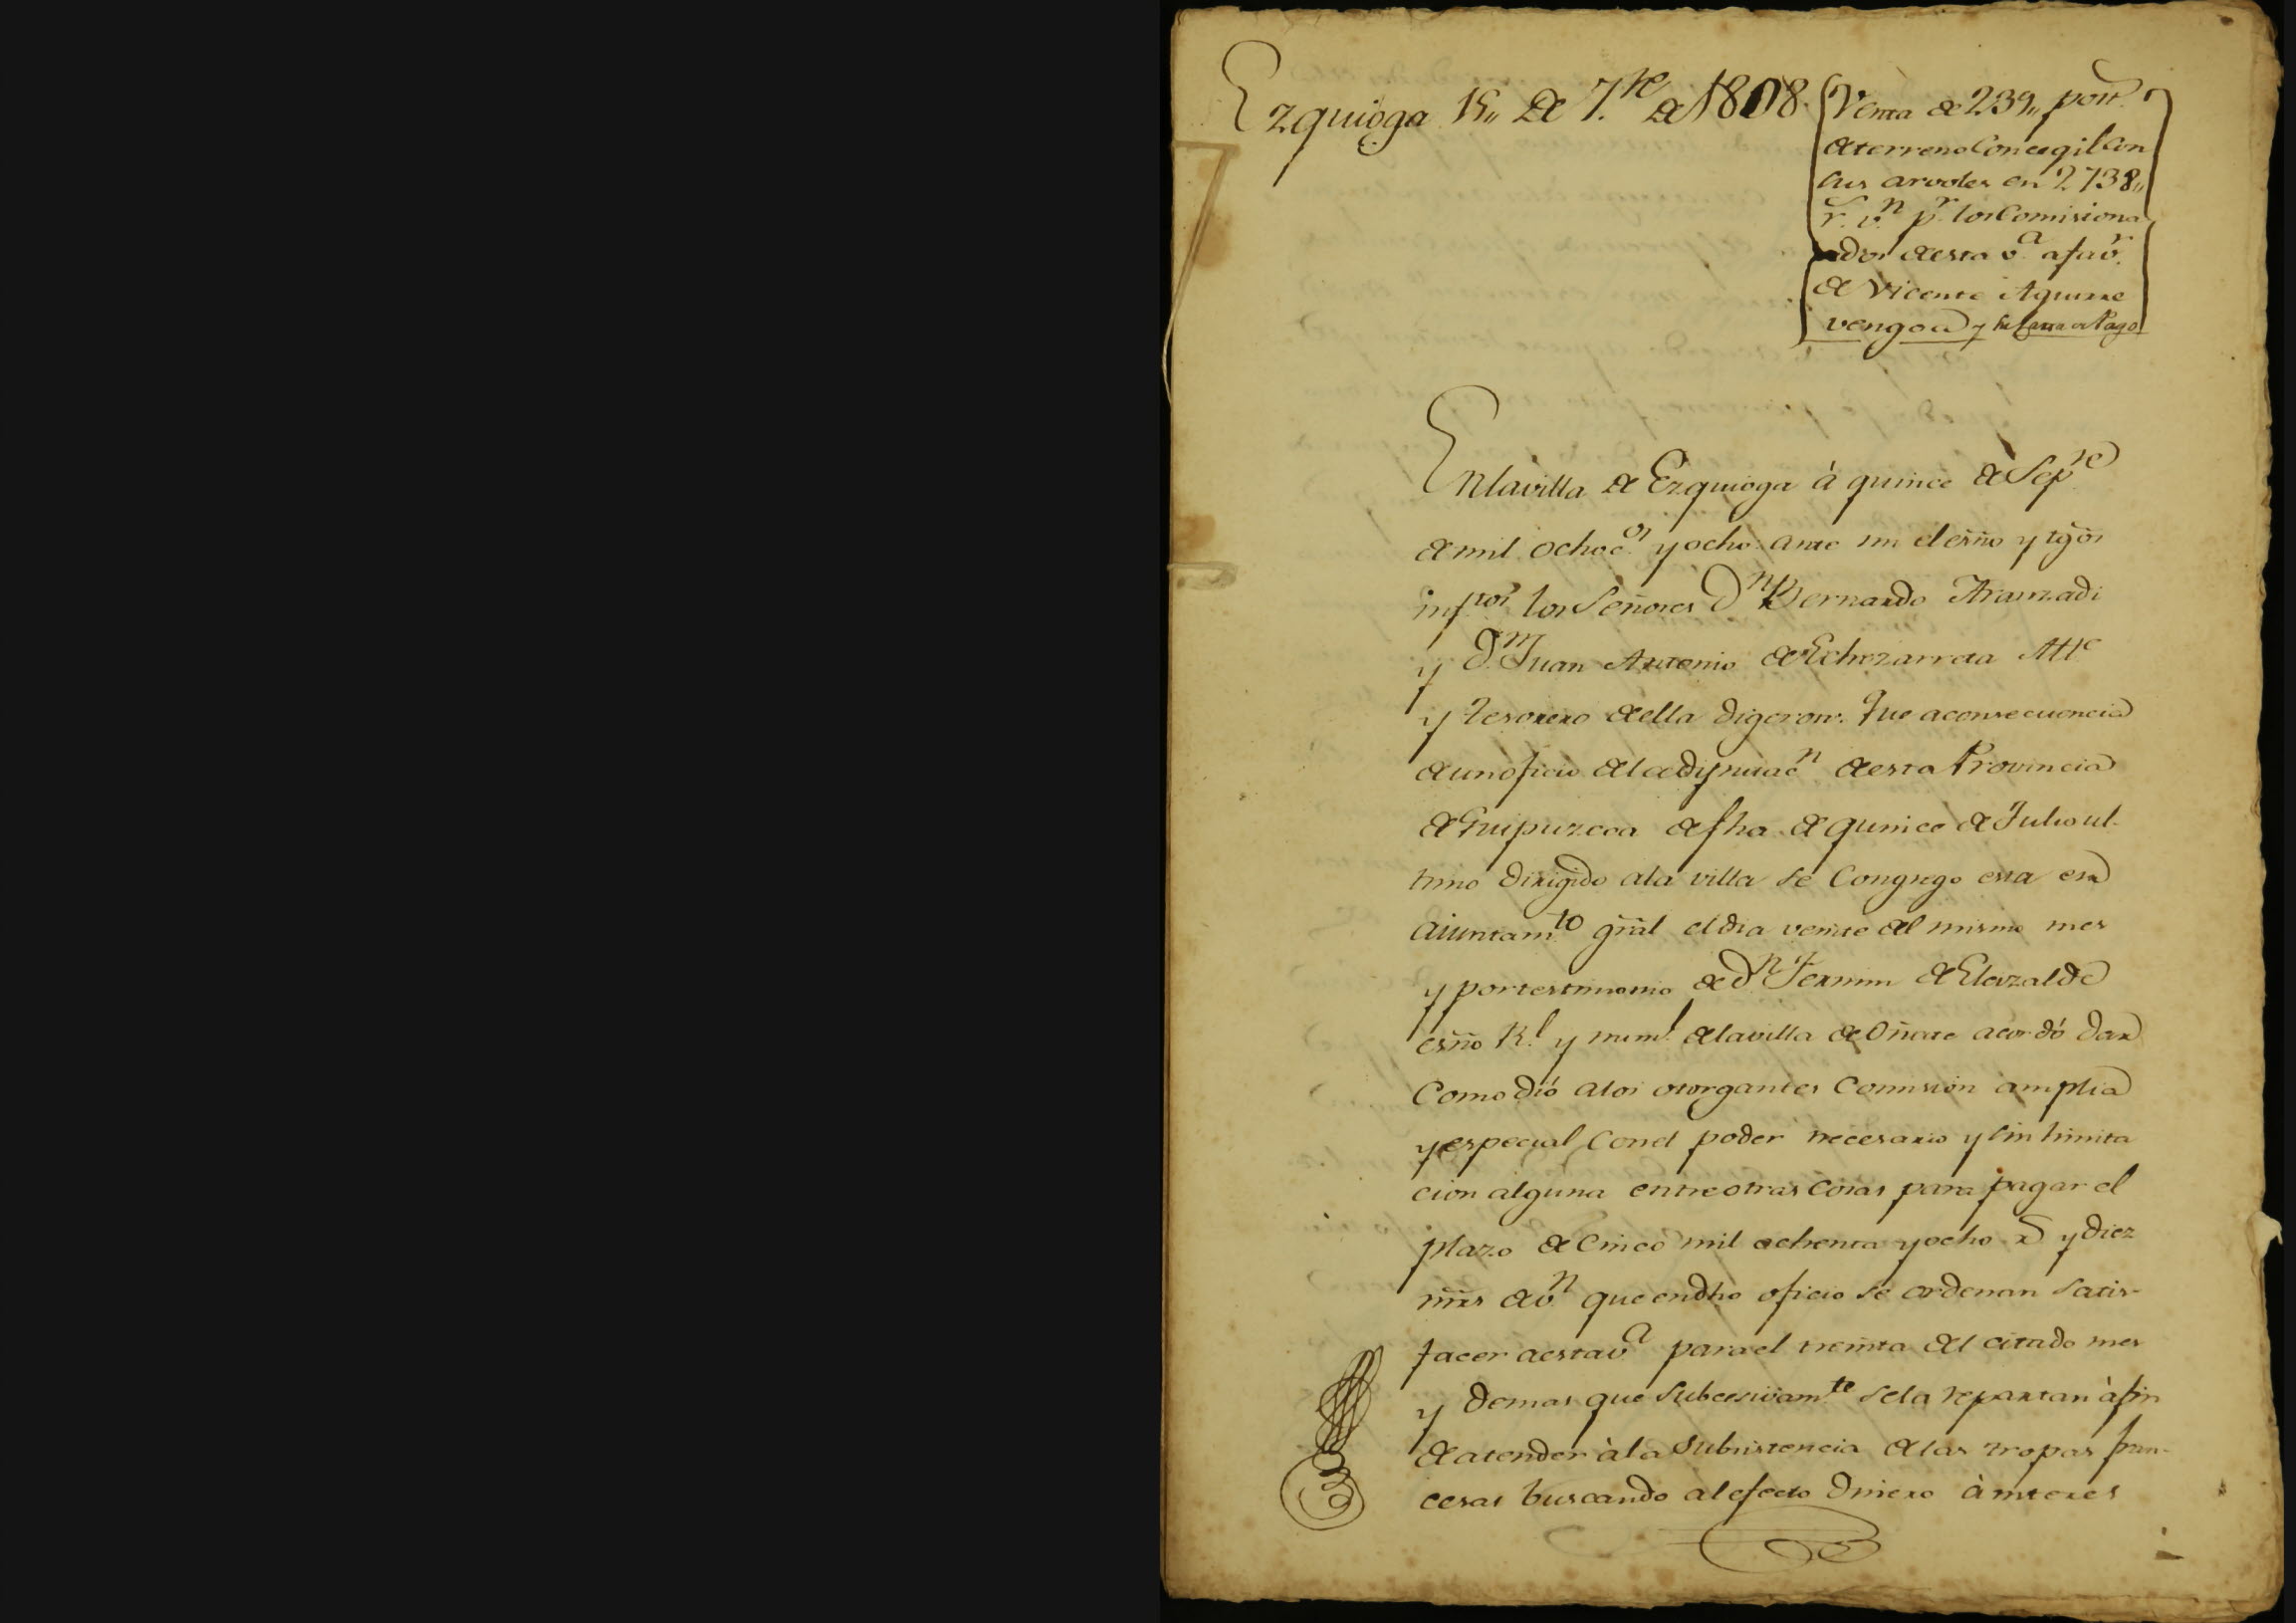 Ezquioga 15,, de 7.re de 1808.
Venta de 239,, post.s
de terreno Concegil Con
sus arvoles en 2738,,
r.s v.n p.r los Comisiona
ados de esta v.a a fav.r
de Vicente Aguirre
vengoa y su Carta de Pago
En la villa de Ezquioga à quince de Sep.re
de mil ochoc.os y ocho: ante mi el esño y tg̃os
infros los Señores D.n Bernardo Aranzadi
y D.n Juan Antonio de Echezarreta Alle
y tesorero de ella digeron: Que a consecuencia
de un oficio de la diputac.n de esta Provincia
de Guipuzcoa de fha de quince de Julio ul-
timo dirigido a la villa se Congrego esta en
aiuntam.to gñal el dia veinte del mismo mes
y por testimonio de D.n Fermin de Elorzalde
esño R.l y num.l de la villa de Oñate acordó dar
Como dió a los otorgantes Comision amplia
y especial Con el poder necesario y sin limita
cion alguna entre otras cosas para pagar el
plazo de Cinco mil ochenta y ocho r.s y diez
mr̃s de v.n que en dho oficio se ordenan satis-
facer a esta v.a para el treinta del citado mes
y demas que subcesivam.te se la repartan à fin
de atender à la subsistencia de las tropas fran-
cesas buscando al efecto dinero à interes